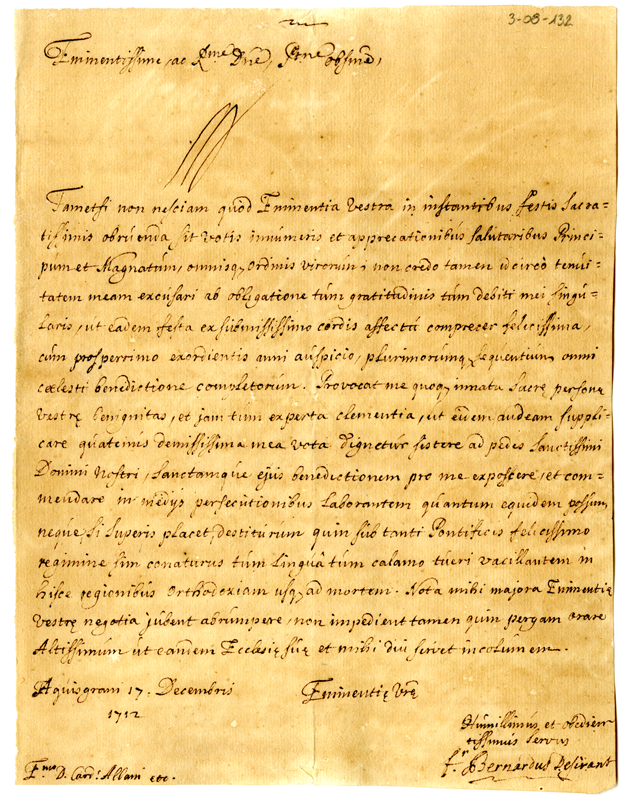 3-08-132
Eminentissime, ac Rme Dne, Ptne obsme,
Tametsi non nesciam quod Eminentia Vestra in instantibus festis Sacra=
tissimis obruenda sit votis innumeris et apprecationibus salutaribus Princi=
pum et Magnatum, omnisq; ordinis virorum; non credo tamen idcircò tenui=
tatem meam excusari ab obligatione tùm gratitudinis tùm debiti mei singu=
laris, ut eadem festa ex submississimo cordis affectu comprecer felicissima,
cum prosperrimo exordientis anni auspicio, plurimorumq; sequentium omni
cælesti benedictione completorum. Provocat me quoq; innata Sacrę personę
Vestrę benignitas, et jam tum experta clementia, ut eidem audeam suppli=
care quatenus demississima mea vota dignetur sistere ad pedes Sanctissimi
Domini Nostri, Sanctamque ejus benedictionem pro me exposcere, et com=
mendare in medijs persecutionibus laborantem quantum equidem possum,
neque, si Superis placet, destiturum quin sub tanti Pontificis felicissimo
regimine sim conaturus tùm linguâ tùm calamo tueri vacillantem in
hisce regionibus Orthodoxiam usq; ad mortem. Nota mihi majora Eminentię
Vestrę negotia jubent abrumpere, non impedient tamen quin pergam orare
Altissimum ut eandem Ecclesię suę et mihi diu servet incolumem.
Aquisgrani 17. Decembris
1712
Eminentię Vrę
Humillimus et obedien
tissimus servus
fr Bernardus Desirant
Emo D. Card: Allani etc.